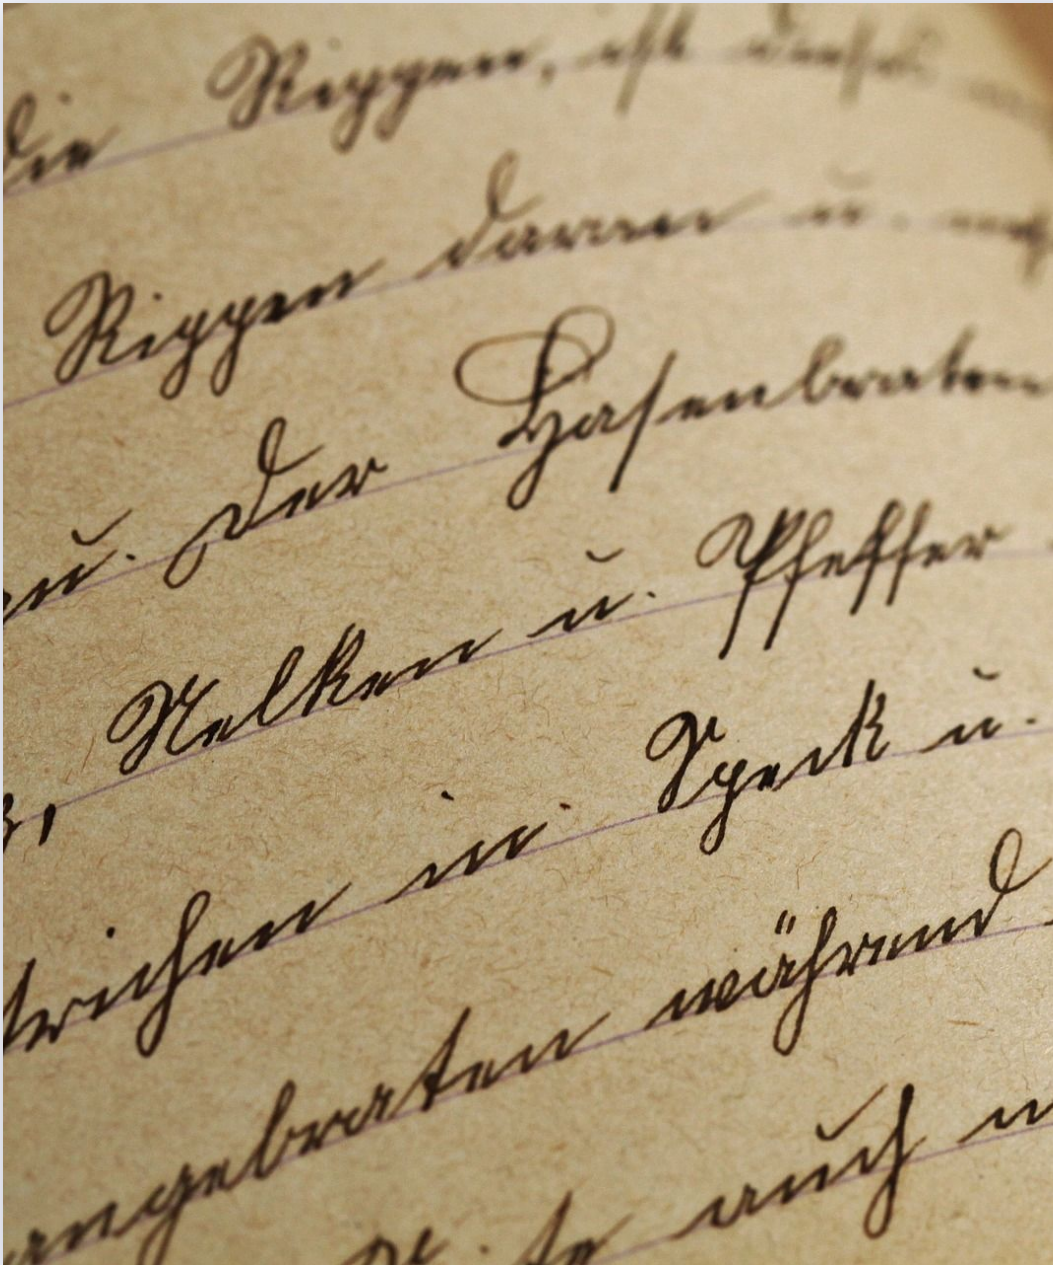 die Rippen, ist dieses
Rippen daran u.
zu. Der Hasenbraten
Nelken u. Pfeffer
in Speck u.
angebraten während
auch